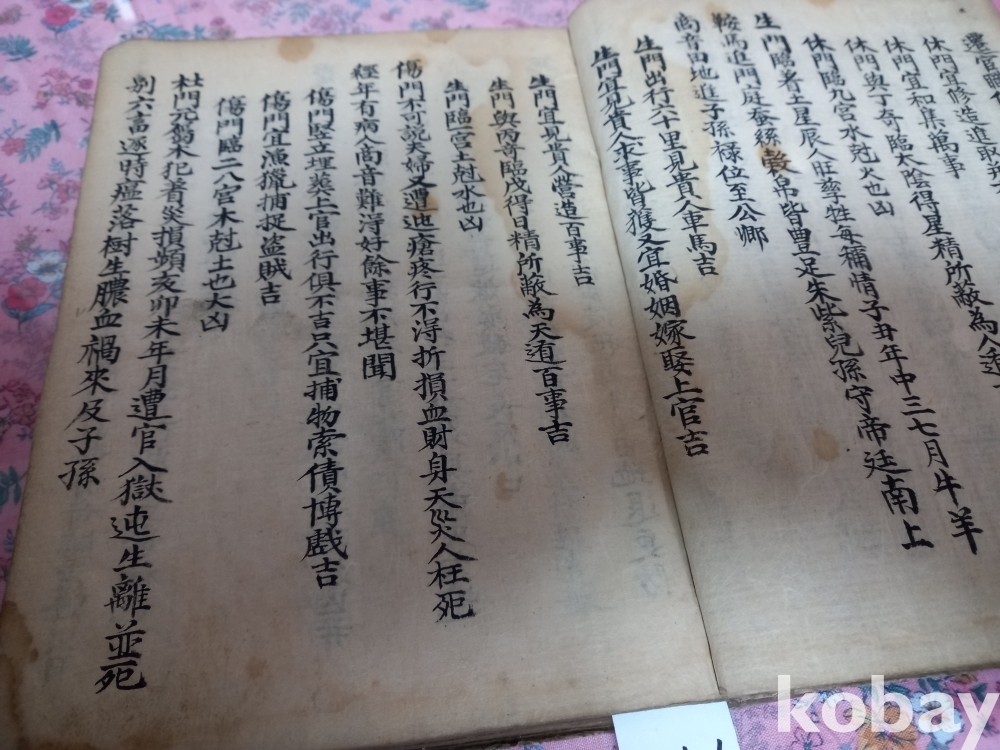 遷官職
休門宜修造進取
休門宜和集萬事
休門與丁奇臨太陰得星精所蔽為人遁
休門臨九宮水尅火也凶
生門臨著土星辰人旺孳牲每稱情子丑年中三七月牛羊
鞍馬進門庭蚕絲穀帛皆豊足朱紫兒孫守帝廷南上
啇音田地進子孫禄位至公卿
生門出行六十里見貴人車馬吉
生門宜見貴人求事皆獲又宜婚姻嫁娶上官吉
生門宜見貴人營造百事吉
生門與丙奇臨戊得日精所蔽為天遁百事吉
生門臨宮土尅水也凶
傷門不可説夫婦又遭迍瘡疼行不淂折損血財身天災人枉死
經年有病人啇音難淂好餘事不堪聞
傷門竪立埋葬上官出行俱不吉只宜捕物索債博戲吉
傷門宜漁獵捕捉盗賊吉
傷門臨二八宮木尅土也大凶
杜門元屬木犯著災損頻亥卯未年月遭官入獄迍生離並死
别六畜逐時瘟落樹生膿血禍來及子孫
kobay